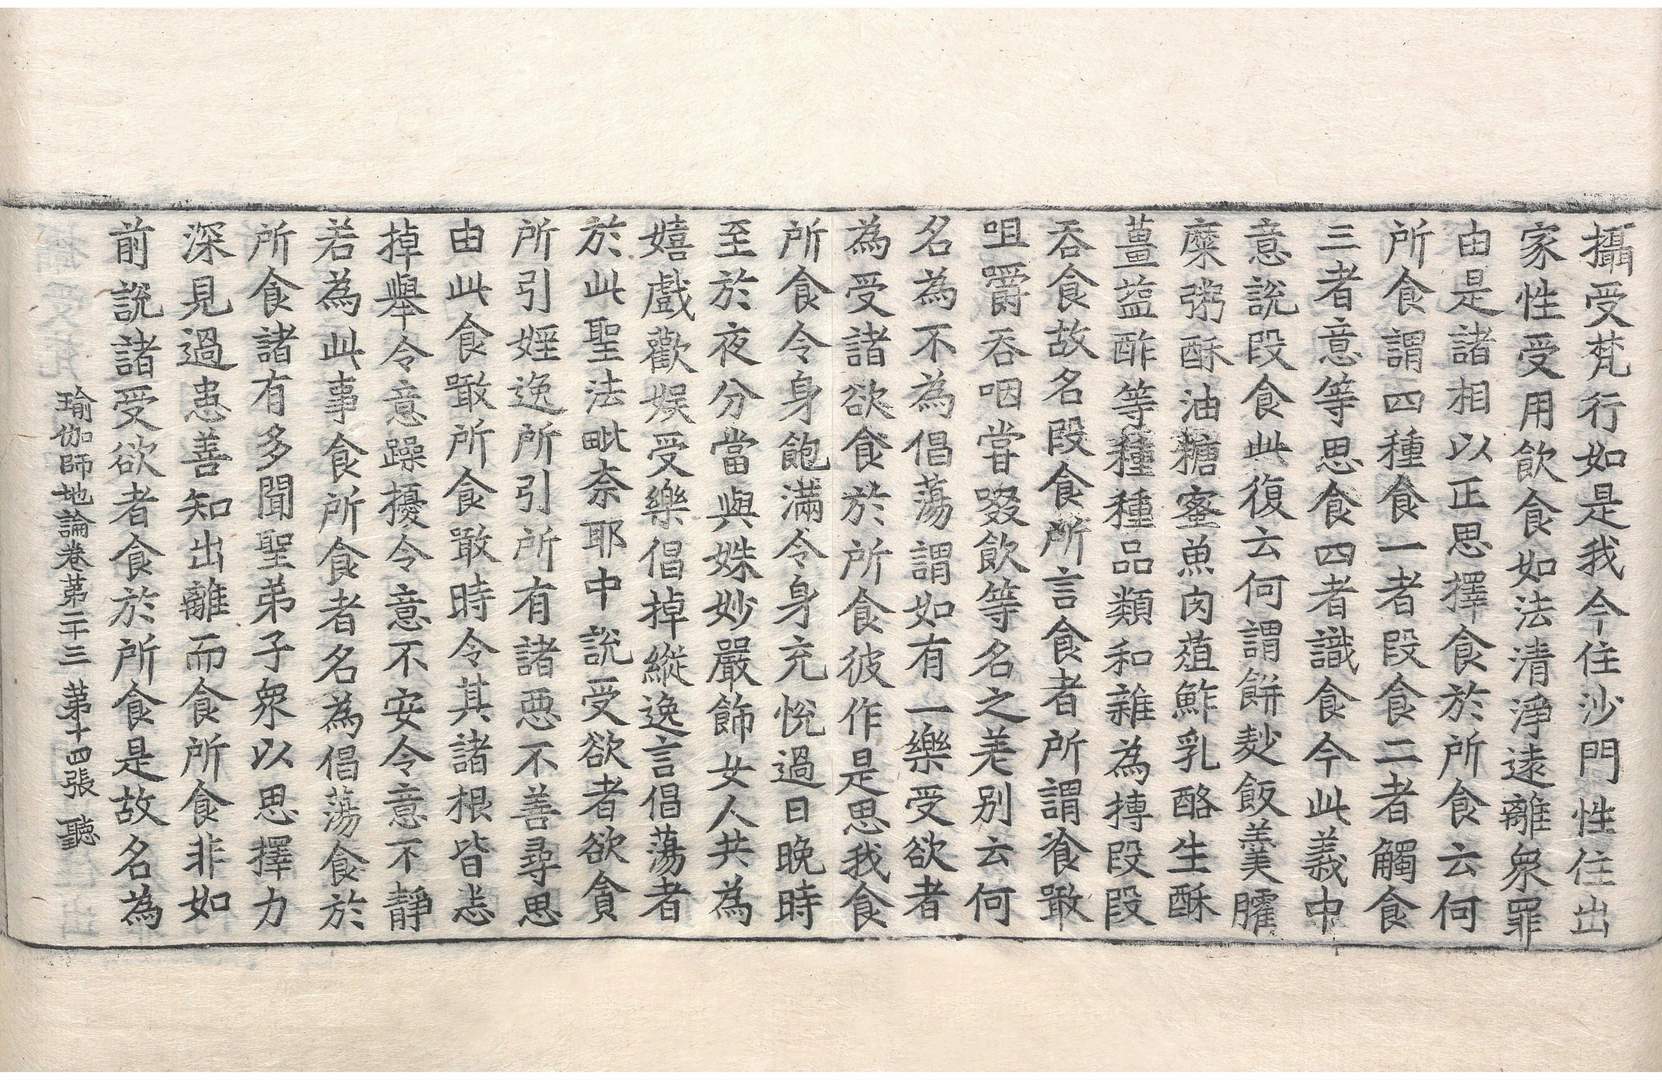 攝受梵行如是我今住沙門性住出
家性受用飲食如法清淨遠離衆罪
由是諸相以正思擇食於所食云何
所食謂四種食一者段食二者觸食
三者意等思食四者識食今此義中
意說段食此復云何謂餅麨飯羹臛
糜粥酥油糖蜜魚肉葅鮓乳酪生酥
薑鹽酢等種種品類和雜為摶段段
吞食故名段食所言食者所謂飡噉
咀嚼吞咽甞啜飲等名之差別云何
名為不為倡蕩謂如有一樂受欲者
為受諸欲食於所食彼作是思我食
所食令身飽滿令身充悅過日晚時
至於夜分當與姝妙嚴飾女人共為
嬉戲歡娛受樂倡掉縱逸言倡蕩者
於此聖法毗奈耶中說受欲者欲貪
所引婬逸所引所有諸惡不善尋思
由此食噉所食噉時令其諸根皆悉
掉舉令意躁擾令意不安令意不靜
若為此事食所食者名為倡蕩食於
所食諸有多聞聖弟子衆以思擇力
深見過患善知出離而食所食非如
前說諸受欲者食於所食是故名為
瑜伽師地論卷第二十三 第十四張 聽